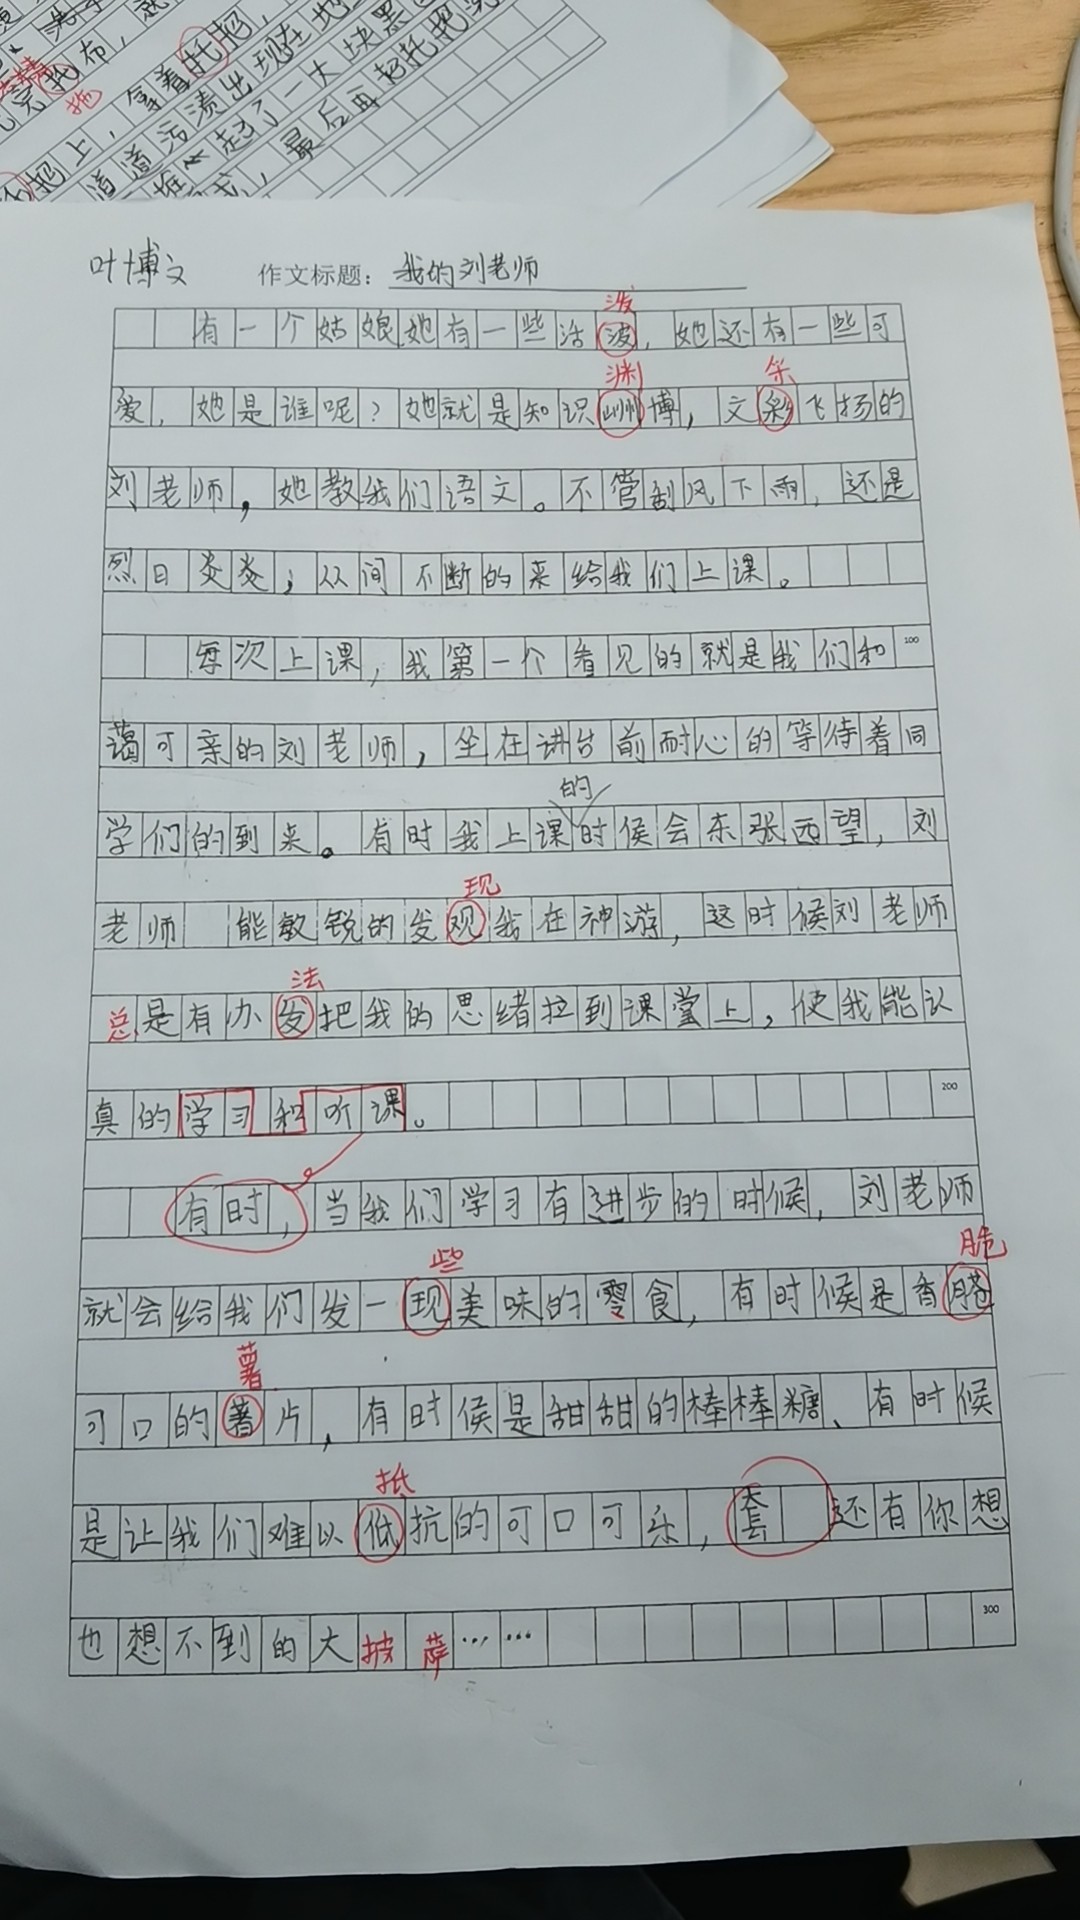 完托布，就
精
拖
上，拿着托把，
道道污渍出现在地
起了一大块黑
最后再把托把
叶博文 作文标题：我的刘老师
泼
有一个姑娘她有一些活波，她还有一些可
渊 采
爱，她是谁呢？她就是知识博，文彩飞扬的
刘老师，她教我们语文。不管刮风下雨，还是
烈日炎炎；从间不断的来给我们上课。
每次上课，我第一个看见的就是我们和 100
蔼可亲的刘老师，坐在讲台前耐心的等待着同
的
学们的到来。有时我上课时侯会东张西望，刘
现
老师 能敏锐的发观我在神游，这时候刘老师
法
总是有办发把我的思绪拉到课堂上，使我能认
200
真的学习和听课。
有时，当我们学习有进步的时候，刘老师
些 脆
就会给我们发一现美味的零食，有时候是香
薯
可口的著片，有时候是甜甜的棒棒糖、有时候
抵
是让我们难以低抗的可口可乐，套 还有你想
300
也想不到的大披萨……